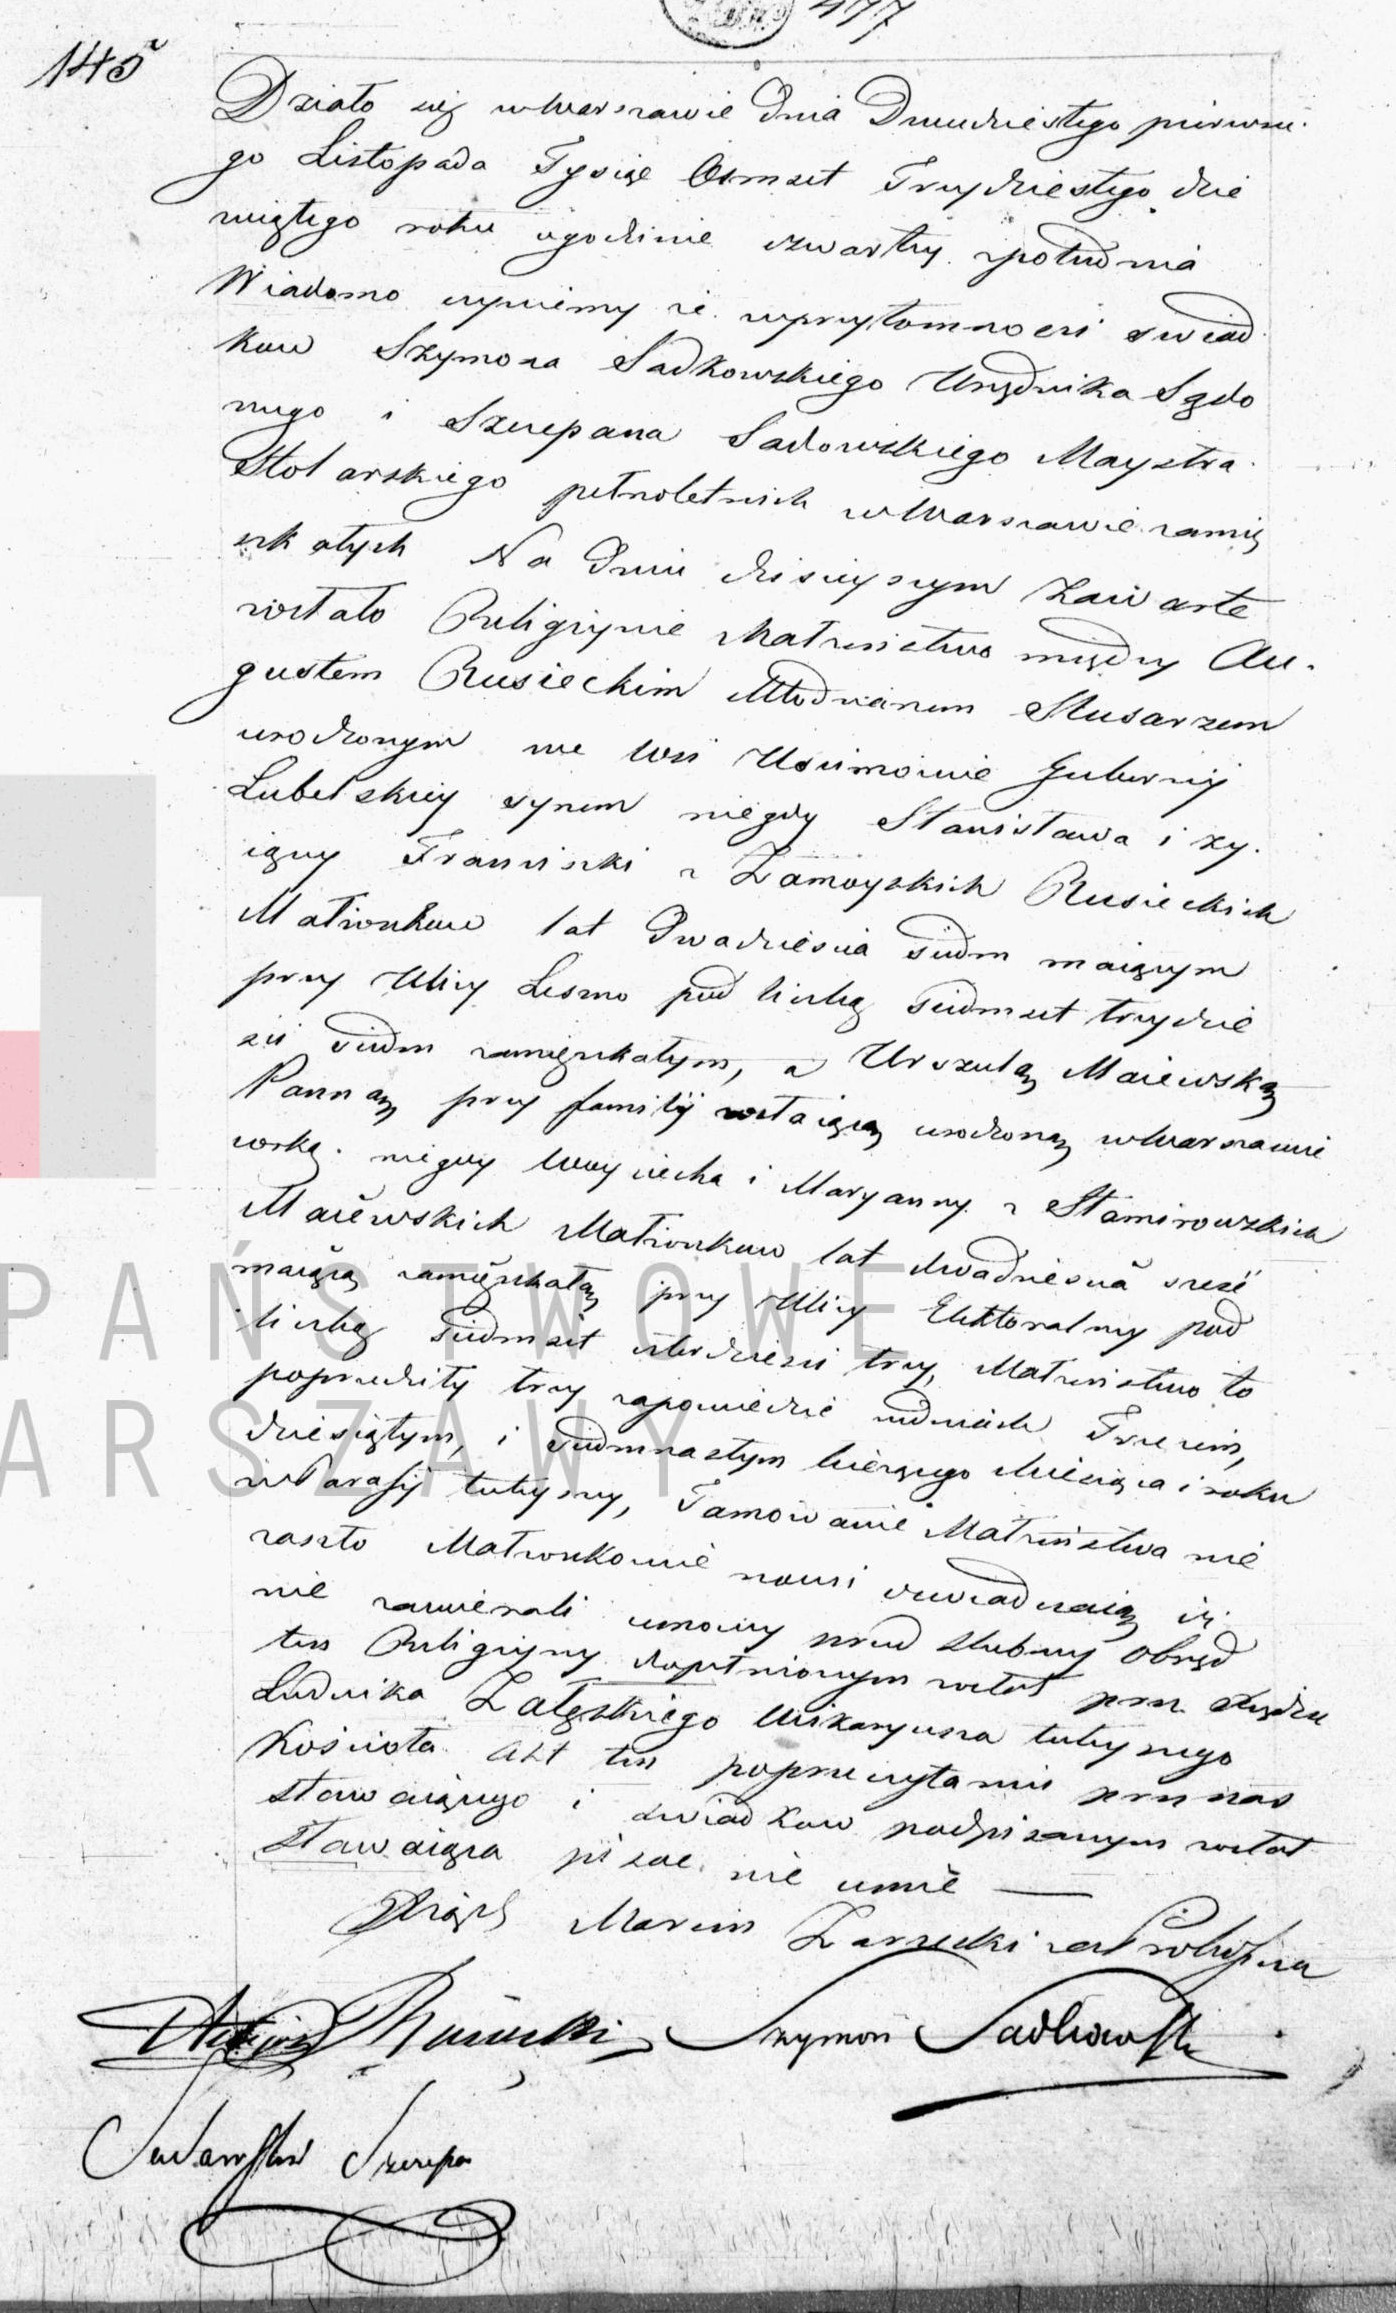 477
145
Działo się w Warszawie dnia Dwudziestego pierwsze-
go Listopada Tysiąc Ośmset Trzydziestego dzie
wiątego roku o godzinie czwartey z południa
Wiadomo czyniemy że w przytomności świad
kow Szymona Sadkowskiego Urzędnika Sądo
wego i Szczepana Sadowskiego Maystra
Stolarskiego pełnoletnich w Warszawie zamie
szkałych Na dniu dzisieyszym zawarte
zostało Religiyne Małżeństwo między Au-
gustem Rusieckim Młodzianem Slusarzem
urodzonym we wsi Uscimowie Gubernij
Lubelskiey synem niegdy Stanisława i zy-
iącey Franciszki z Zamoyskich Rusieckich
Małżonkow lat Dwadzieścia siedm maiącym
przy Ulicy Leszno pod liczbą siedmset trzydzie
ści siedm zamięszkałym, a Urszulą Maiewską
Panną przy familij zostaiącą urodzoną w Warszawie
corką niegdy Woyciecha i Maryanny z Stamirowskich
Maiewskich Małżonkow lat dwadzieścia sześć
maiącą zamięszkałą przy Ulicy Elektoralney pod
liczbą siedmset czterdzieści trzy, Małżeństwo to
poprzedziły trzy zapowiedzie w dniach Trzecim,
dziesiątym, i siedmnastym bieżącego Miesiąca i roku
w Parafij tuteyszey, Tamowanie Małżeństwa nie
zaszło Małżonkowie nowi oświadczaią iż
nie zawierali umowy przed slubney Obrząd
ten Religiyny dopełnionym został przez Xiędza
Ludwika Załęskiego Wikaryusza tuteyszego
Kościoła Akt ten po przeczytaniu przez nas
stawaiącego i swiadkow podpisanym został
stawaiąca pisać nie umie —
Xiądz Marcin Zarzecki za Proboszcza
August Rusiecki Szymon Sadkowski
Sadowski Szczepan
PAŃSTWOWE
WARSZAWY